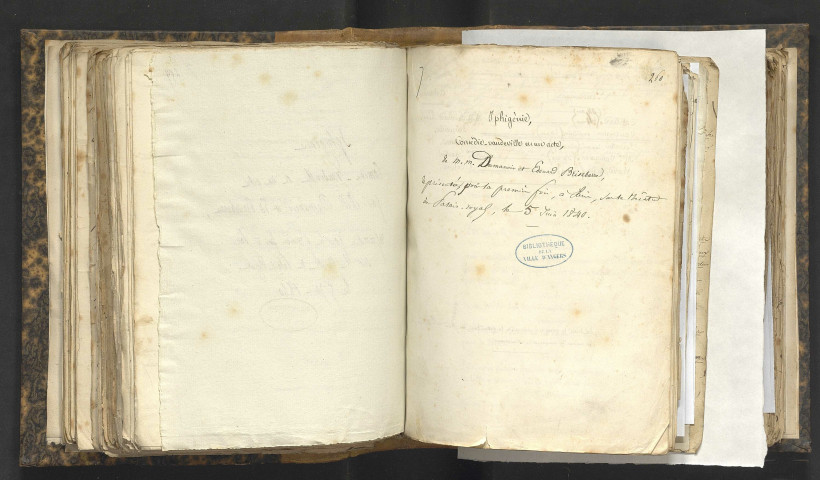 210
Iphigénie,
Comédie-vaudeville en un acte,
de M.M. Dumanoir et Edouard Brisebarre,
représentée pour la première fois, à Paris, sur le théâtre
du Palais-royal, le 5 Juin 1840.
BIBLIOTHÈQUE
DE LA
VILLE D'ANGERS